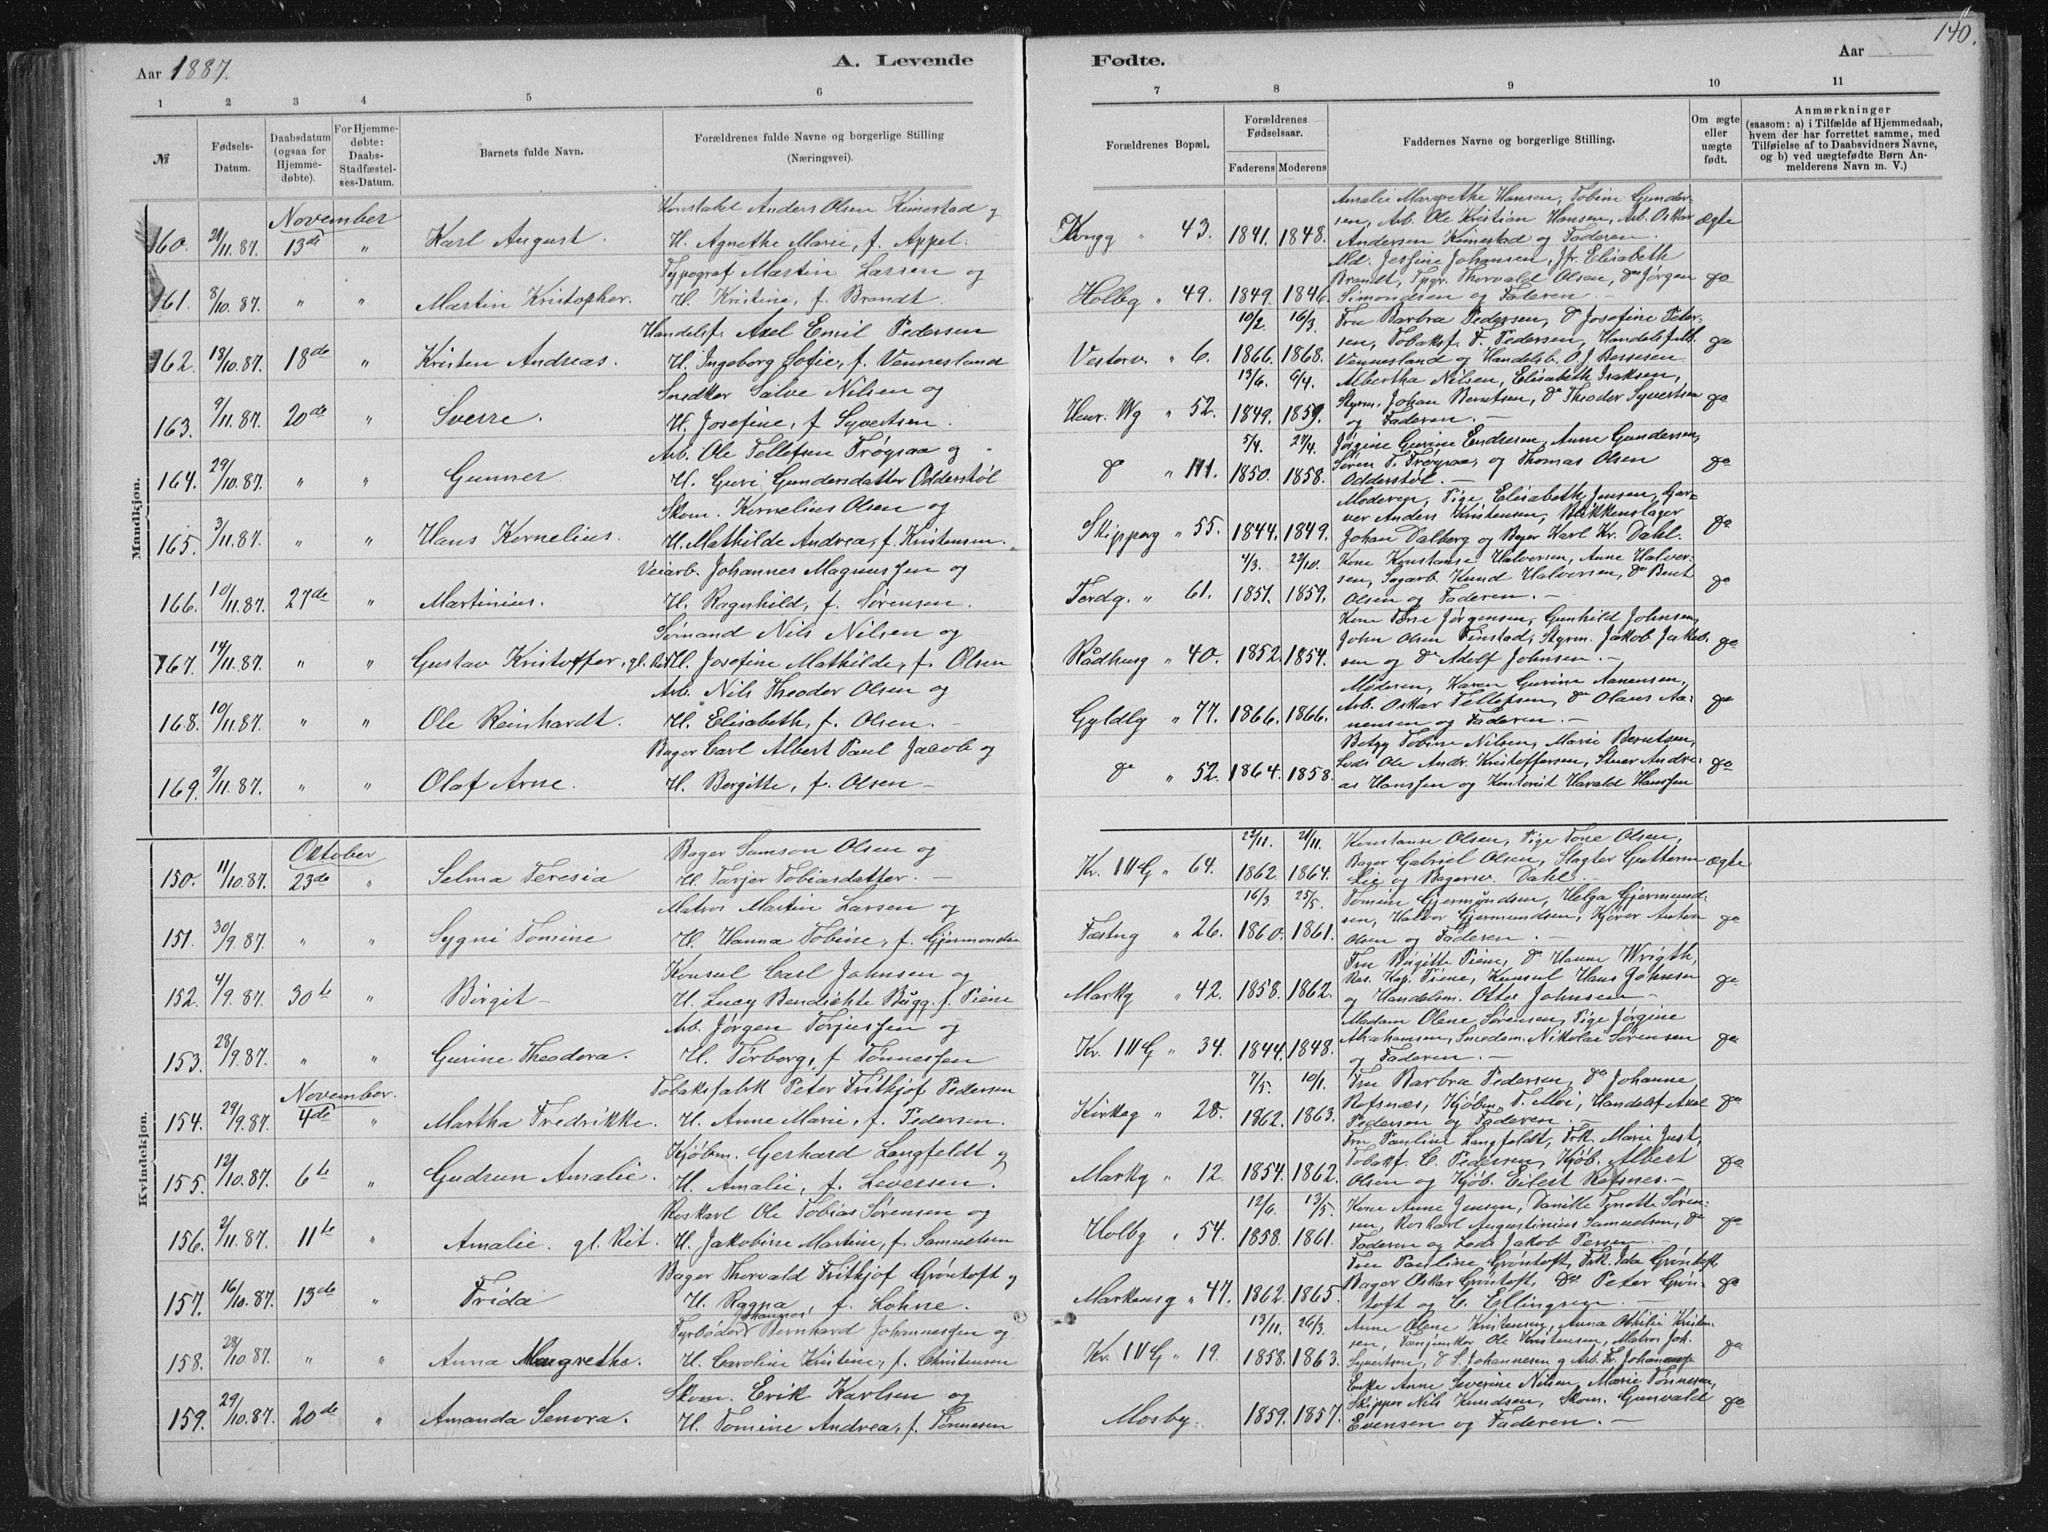 Aar 1887. A. Levende Fødte. Aar 140.
1 2 3 4 5 6 7 8 9 10 11
№ Fødsels-Datum. Daabsdatum (ogsaa for Hjemme-døbte). For Hjemme-døbte: Daabs-Stadfæstel-ses-Datum. Barnets fulde Navn. Forældrenes fulde Navne og borgerlige Stilling (Næringsvei). Forældrenes Bopæl. Forældrenes Fødselsaar. Faderens Moderens Faddernes Navne og borgerlige Stilling. Om ægte eller uægte født. Anmærkninger (saasom: a) i Tilfælde af Hjemmedaab, hvem der har forrettet samme, med Tilføielse af to Daabsvidners Navne, og b) ved uægtefødte Børn An-melderens Navn m. V.)
Mandkjøn.
November
Konstabel Anders Olsen Kimestad og Amalie Margrethe Hansen, Tobine Gunder-
160. /11.87. 13de " Karl August. H. Agnethe Marie, f. Appel. Kongg " 43. 1841. 1848. sen, Arb. Ole Kristian Hansen, Arb. Oskar ægte
Andersen Kimestad og Faderen.
Typograf Martin Larsen og Md. Jesfine Johansen, Jfr. Elisabeth
161. 8/10.87. " " Martin Kristopher. H. Kristine, f. Brandt. Holbg " 49. 1849. 1846. Brandt, Typgr. Thorvald Olsen, do Jørgen do
Simondsen og Faderen. —
Handelsf. Axel Emil Pedersen 10/2. 16/3. Fru Barbra Pedersen, do Josefine Peter-
162. 18/10.87. 18de " Kristen Andreas. H. Ingeborg Sofie, f. Vennesland Vesterv. " 6. 1866. 1868. sen, Tobaksf. F. Pedersen, Handelsfulb. do
Vennesland og Handelsb. O. J. Bessesen.
Snedker Salve Nilsen og 13/6. 6/4. Albertha Nilsen, Elisabeth Isaksen,
163. 9/11.87. 20de " Sverre. H. Josefine, f. Syvertsen. Henr. Wg " 52. 1849. 1859. Styrm. Johan Berntsen, do Theodor Syvertsen do
og Faderen. —
Arb. Ole Tellefsen Trøgsaa og 5/4. 27/4. Jørgine Gurine Endresen, Anne Gundersen,
164. 29/10.87. " " Gunner H. Guri Gundersdatter Odderstøl do " 111. 1850. 1858. Søren T. Trøgsaa, og Thomas Olsen do
Odderstøl. —
Skom. Kornelius Olsen og Moderen, Pige Elisabeth Jensen, Gar-
165. 3/11.87. " " Hans Kornelius. H. Mathilde Andrea, f. Kristensen. Skipperg " 55. 1844. 1849. ver Anders Kristensen, Blikkenslager do
Johan Dalberg og Bager Karl Kr. Dahl.
Veiarb. Johannes Magnussen og 4/3. 22/10. Kone Konstanse Halversen, Anne Halver-
166. 10/11.87. 27de " Martinius. H. Ragnhild, f. Sørensen. Tordg. " 61. 1851. 1859. sen, Sagarb. Knud Halversen, do Bent do
Olsen og Faderen. —
Sømand Nils Nilsen og Kone Torse Jørgensen, Gunhild Johnsen,
167. 14/11.87. " " Gustav Kristoffer, gl. Rit. H. Josefine Mathilde, f. Olsen Rådhusg " 40. 1852. 1854. John Olsen Finstad, Styrm. Jakob Jakob- do
sen og do Adolf Johnsen. —
Arb. Nils Theodor Olsen og Moderen, Karen Gurine Aanensen,
168. 10/11.87. " " Ole Reinhardt. H. Elisabeth, f. Olsen. — Gyldlg " 77. 1866. 1866. Arb. Oskar Tellefsen, do Olaus Aa- do
nensen og Faderen. —
Bager Carl Albert Paul Jacob og Betzy Tobine Nilsen, Marie Berntsen,
169. 9/11.87. " " Olaf Arne. H. Bergitte, f. Olsen — do " 52. 1864. 1858. Lods Ole Andr. Kristoffersen, Stuer Andre- do
as Hanssen og Kontorist Harald Hanssen
Kvindekjøn.
Oktober
Bager Samson Olsen og 22/11. 21/11. Konstanse Olsen, Pige Tone Olsen,
150. 11/10.87. 23de " Selma Teresia H. Tarjer Tobiasdatter. — Kr. IV G " 64. 1862. 1864. Bager Gabriel Olsen, Slagter Guttorm ægte
Lie og Bagersv. Dahl. —
Matros Martin Larsen og 16/3. 25/5. Tomine Gjermundsen, Helga Gjermund-
151. 30/9.87. " " Sygni Tomine H. Hanna Tobine, f. Gjermondsen Festng " 26. 1860. 1861. sen, Halvor Gjermundsen, Kjører Anton do
Olsen og Faderen. —
Konsul Carl Johnsen og Fru Birgitte Piene, do Hanne Wrigth,
152. 4/9.87. 30te " Birgit — H. Lucy Bendichte Bugg, f. Piene Markg " 42. 1858. 1862. Res. Kap. Piene, Kunsul Hans Johnsen do
og Handelsm. Otto Johnsen —
Arb. Jørgen Torjussen og Madam Olene Sørensen, Pige Jørgine
153. 28/9.87. " " Gurine Theodora. H. Torborg, f. Tønnessen Kr. IV G " 34. 1844. 1848. Abrahamsen, Smedem. Nikolai Sørensen do
og Faderen. —
November.
Tobaksfabk Peter Fritkjof Pedersen 7/5. 10/1. Fru Barbra Pedersen, do Johanne
154. 29/9.87. 4de " Martha Fredrikke. H. Anne Marie, f. Pedersen. Kirkeg " 28. 1862. 1863. Rofsnæs, Kjøbm. F. Moi, Handelsf. Axel do
Pedersen og Faderen. —
Kjøbm. Gerhard Langfeldt og Fru Pauline Langfeldt, Frk. Marie Just,
155. 12/10.87. 6te " Gudrun Amalie. H. Amalie, f. Leversen. Markg " 12. 1854. 1862. Tobakf. C. Pedersen, Kjøb. Albert do
Olsen og Kjøb. Eilert Rofsnes. —
Roskarl Ole Tobias Sørensen og 12/6. 13/5. Kone Anne Jensen, Danikke Tynotte Søren-
156. 2/11.87. 11te " Amalie. gl. Rit. H. Jakobine Martine, f. Samuelsen Holbg " 54. 1858. 1861. sen, Roskarl Augustinius Samuelsen, do do
Faderen og Lods Jakob Persen. —
Bager Thorvald Fritkjof Grøntoft og Fru Pauline Grøntoft, Frk. Ida Grøntoft,
157. 16/10.87. 13de " Frida H. Ragna, f. Lohne. Markensg " 47. 1862. 1865. Bager Oskar Grøntoft, do Peter Grøn- do
toft og C. Ellingsen. —
Johannes
Fyrbøder Bernhard Johannessen og 13/11. 26/3. Anne Olene Kristensen, Anna Othilie Kristen-
158. 28/10.87. " " Anna Margrethe. H. Caroline Kristine, f. Christensen Kr. IV G " 19. 1858. 1863. sen, Ole Kristensen, Matros Joh. do
Syvertsen, do S. Johannesen og Arb. Fr. Johannesen
Skom. Erik Karlsen og Enke Anne Severine Nilsen, Marie Tønnesen,
159. 29/10.87. 20de " Amanda Senora. H. Tomine Andrea, f. Tønnesen Mosby. 1859. 1857. Skipper Nils Knudsen, Skom. Gunvald do
Evensen og Faderen. —